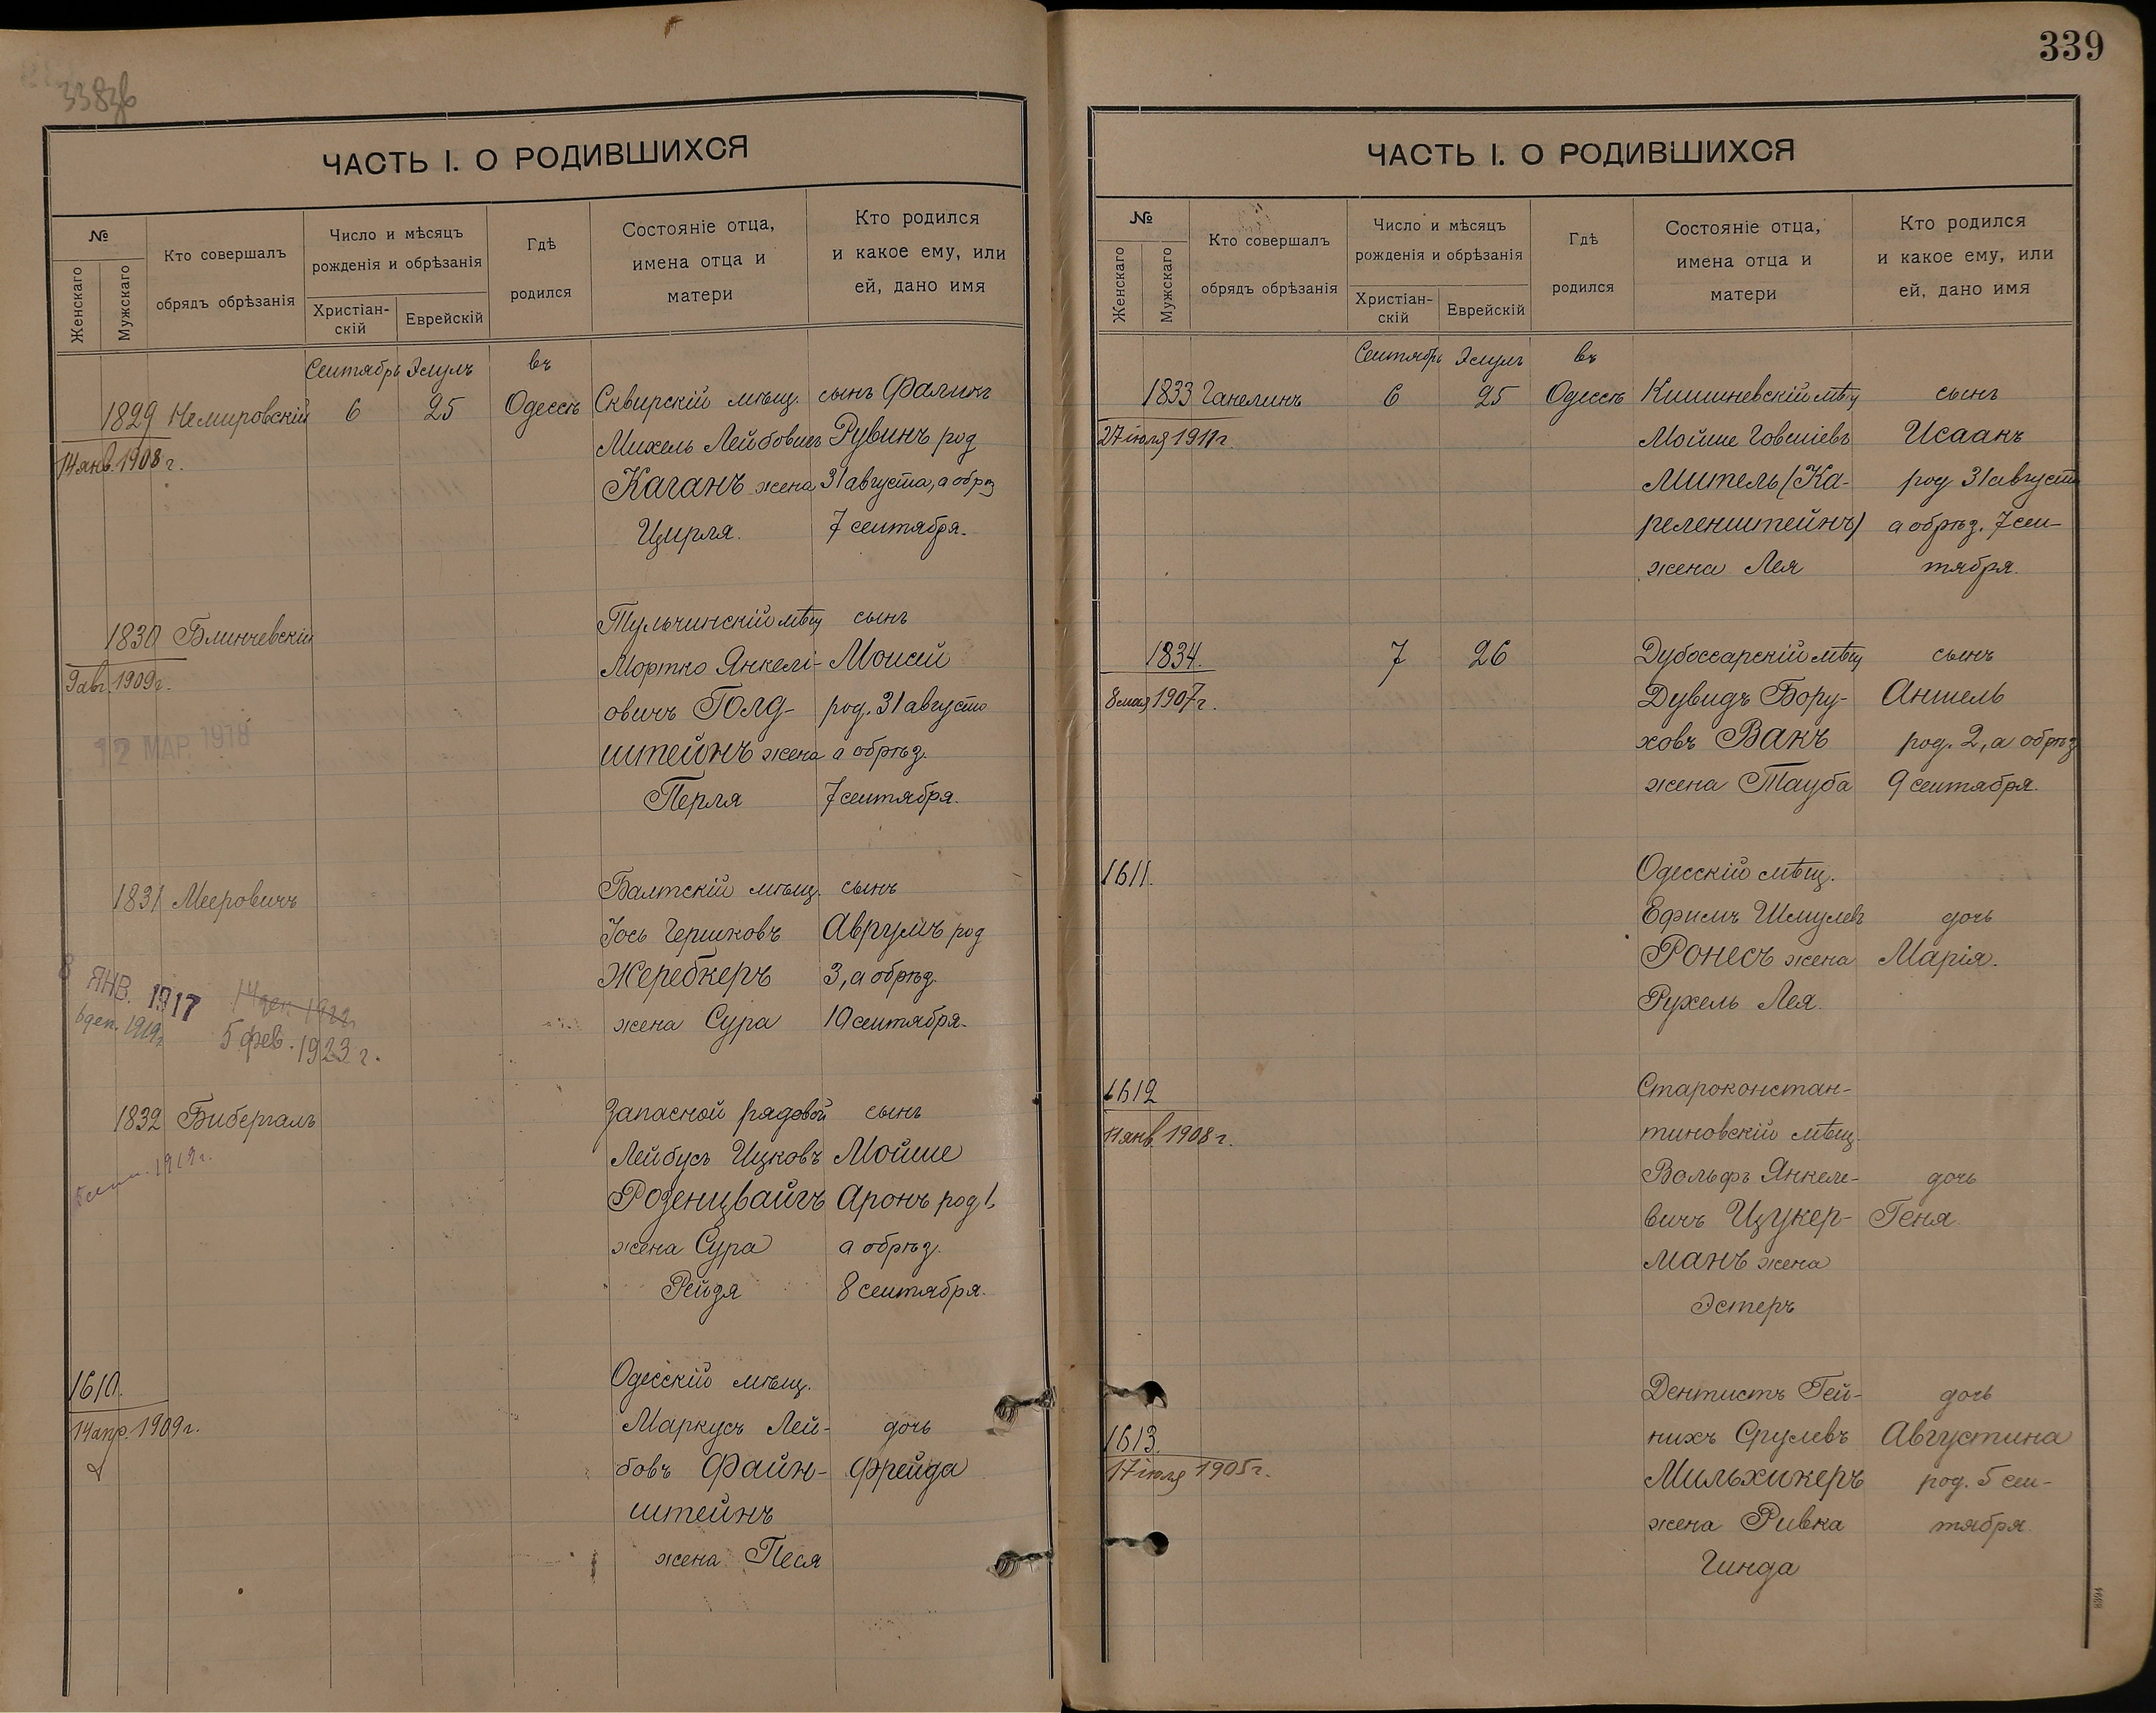 338об
ЧАСТЬ I. О РОДИВШИХСЯ
№
Женскаго
Мужскаго
Кто совершалъ
обрядъ обрѣзанія
Число и мѣсяцъ
рожденія и обрѣзанія
Христіан-
скій
Еврейскій
Гдѣ
родился
Состояніе отца,
имена отца и
матери
Кто родился
и какое ему, или
ей, дано имя
Сентябрь Элулъ въ
1829 Немировскій 6 25 Одессѣ Сквирскій мѣщ. сынъ
14 янв. 1908 г.
Михель Лейбовичъ Рувинъ род
Каганъ жена 31 августа, а обрѣз
Цирля. 7 сентября.
Тульчинскій мѣщ сынъ
1830 Блинчевскій
Мортко Янкелі- Моисей
9 авг. 1909 г.
овичъ Голд- род. 31 августа
12 МАР. 1918
штейнъ жена а обрѣз.
Перля 7 сентября.
Балтскій мѣщ. сынъ
1831 Мееровичъ
Іось Гершковъ Аврумъ род
Жеребкеръ 3, а обрѣз.
8 ЯНВ. 1917
14 дек. 1922
жена Сура 10 сентября.
6 деп. 1919 г
5 фев. 1923 г.
Запасной рядовой сынъ
1832 Бибергалъ
Лейбусъ Ицковъ Мойше
1919 г.
Розенцвайгъ Аронъ род 1,
жена Сура а обрѣз.
Рейзя 8 сентября.
Одесскій мѣщ.
1610.
Маркусъ Лей- дочь
14 апр. 1909 г.
бовъ Файн- Фрейда
штейнъ
жена Песя
339
ЧАСТЬ I. О РОДИВШИХСЯ
№
Женскаго
Мужскаго
Кто совершалъ
обрядъ обрѣзанія
Число и мѣсяцъ
рожденія и обрѣзанія
Христіан-
скій
Еврейскій
Гдѣ
родился
Состояніе отца,
имена отца и
матери
Кто родился
и какое ему, или
ей, дано имя
Сентябрь Элулъ въ
1833 Ганелинъ 6 25 Одессѣ Кишиневскій мѣщ сынъ
27 іюля 1911 г.
Мойше Говшіевъ Исаакъ
Митель (Ка- род 31 августа
реленштейнъ) а обрѣз. 7 сен-
жена Лея тября.
1834. 7 26 Дубоссарскій мѣщ сынъ
8 мая 1907 г.
Дувидъ Бору- Аншель
ховъ Вакъ род. 2, а обрѣз
жена Тауба 9 сентября.
1611.
Одесскій мѣщ.
Ефимъ Шмулевъ дочь
Ронесъ жена Марія.
Рухель Лея.
1612
Староконстан-
11 янв. 1908 г.
тиновскій мѣщ.
Вольфъ Янкеле- дочь
вичъ Цукер- Геня.
манъ жена
Эстеръ
Дентистъ Гей- дочь
1613.
нихъ Срулевъ Августина
17 іюля 1905 г.
Мильхикеръ род. 5 сен-
жена Ривка тября.
Гинда